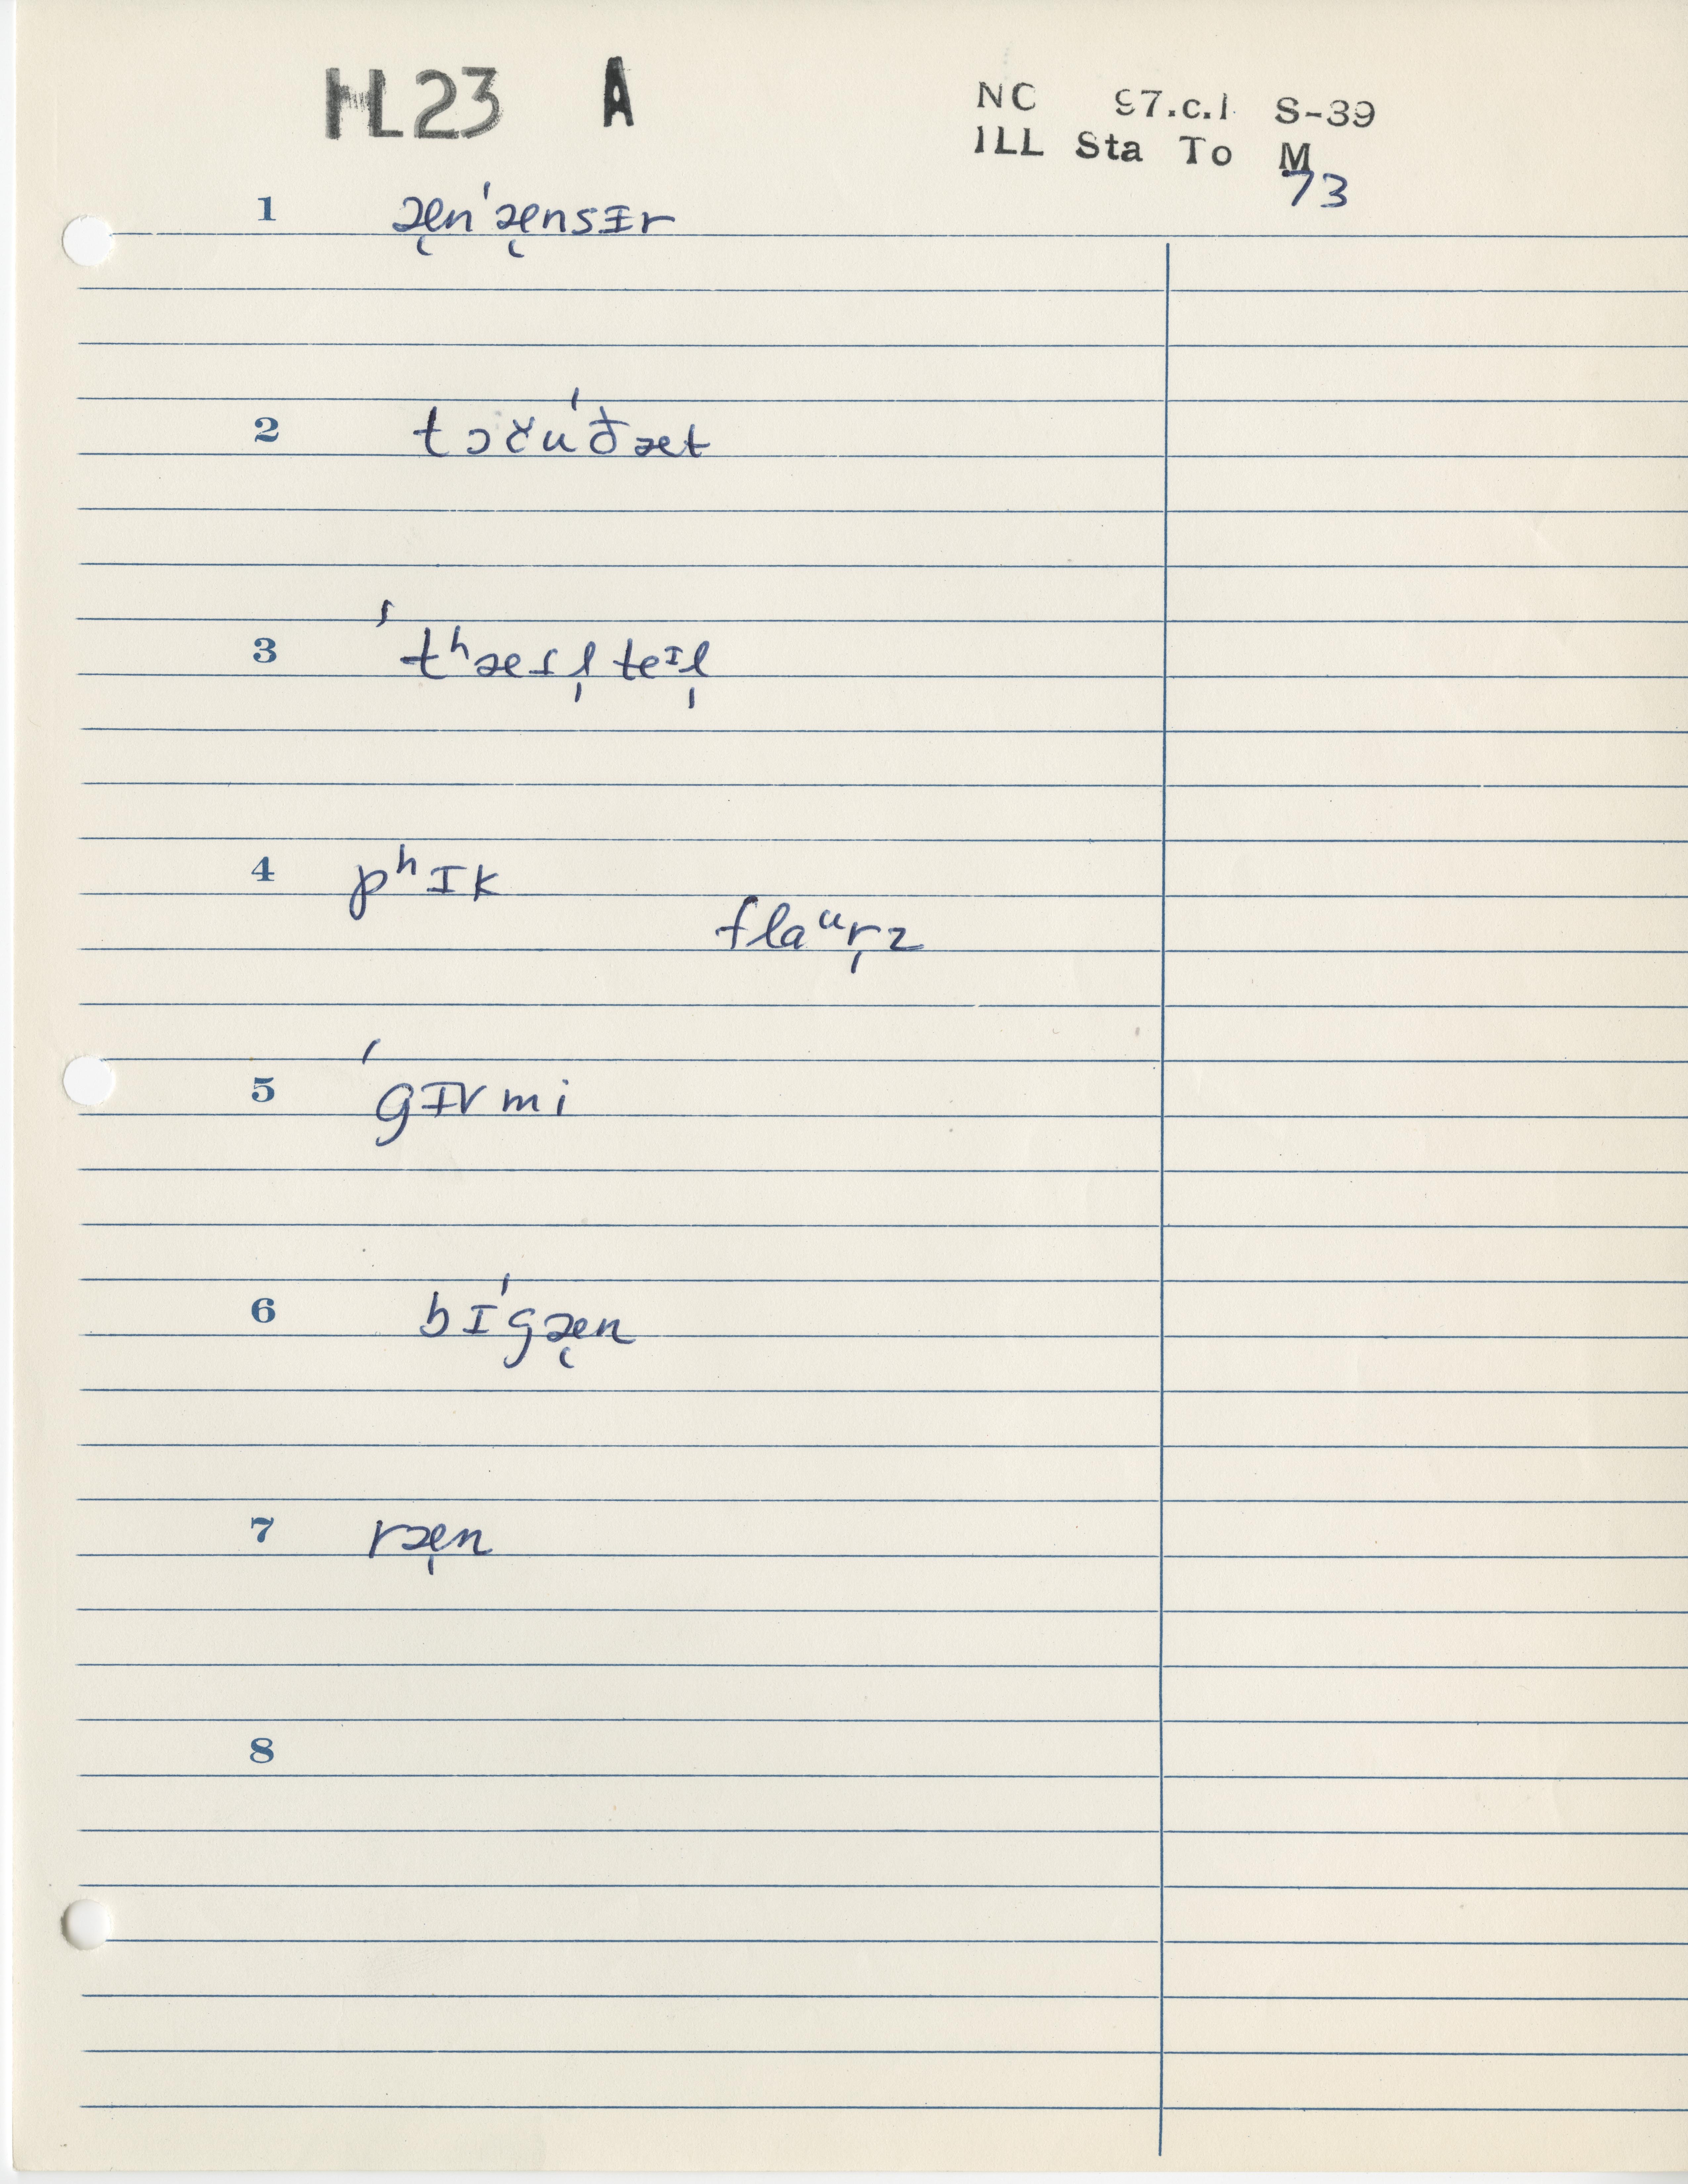 HL23 A
NC 97.c.1 S-39
ILL Sta To M
73
1 æ̨n'æ̨nsɪr
2 tɔču'ðæt
3 'tʰæsl̩teᶦl̩
4 pʰɪk
flaᵘr̩z
5 'gɪvmi
6 bɪ'gæ̨n
7 ræ̩n
8